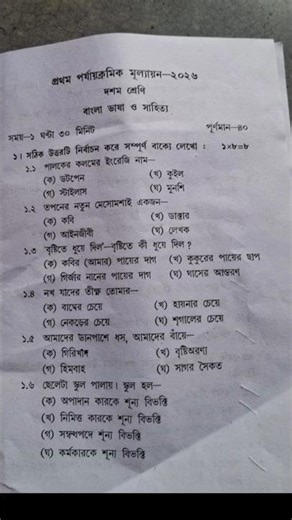 প্রথম পর্যায়ক্রমিক মূল্যায়ন—২০২৬
দশম শ্রেণি
বাংলা ভাষা ও সাহিত্য
সময়—১ ঘণ্টা ৩০ মিনিট পূর্ণমান—৪০
১। সঠিক উত্তরটি নির্বাচন করে সম্পূর্ণ বাক্যে লেখো : ১×৮=৮
১.১ পালকের কলমের ইংরেজি নাম—
(ক) ডটপেন (খ) কুইল
(গ) স্টাইলাস (ঘ) মুনশি
১.২ তপনের নতুন মেসোমশাই একজন—
(ক) কবি (খ) ডাক্তার
(গ) আইনজীবী (ঘ) লেখক
১.৩ 'বৃষ্টিতে ধুয়ে দিল'—বৃষ্টিতে কী ধুয়ে দিল ?
(ক) কবির (আমার) পায়ের দাগ (খ) কুকুরের পায়ের ছাপ
(গ) গির্জার নানের পায়ের দাগ (ঘ) ঘাসের আস্তরণ
১.৪ নখ যাদের তীক্ষ্ণ তোমার—
(ক) বাঘের চেয়ে (খ) হায়নার চেয়ে
(গ) নেকড়ের চেয়ে (ঘ) শৃগালের চেয়ে
১.৫ আমাদের ডানপাশে ধস, আমাদের বাঁয়ে—
(ক) গিরিখাঁদ (খ) বৃষ্টিঅরণ্য
(গ) হিমবাহ (ঘ) সাগর সৈকত
১.৬ ছেলেটা স্কুল পালায়। স্কুল হল—
(ক) অপাদান কারকে শূন্য বিভক্তি
(খ) নিমিত্ত কারকে শূন্য বিভক্তি
(গ) সম্বন্ধপদে শূন্য বিভক্তি
(ঘ) কর্মকারকে শূন্য বিভক্তি